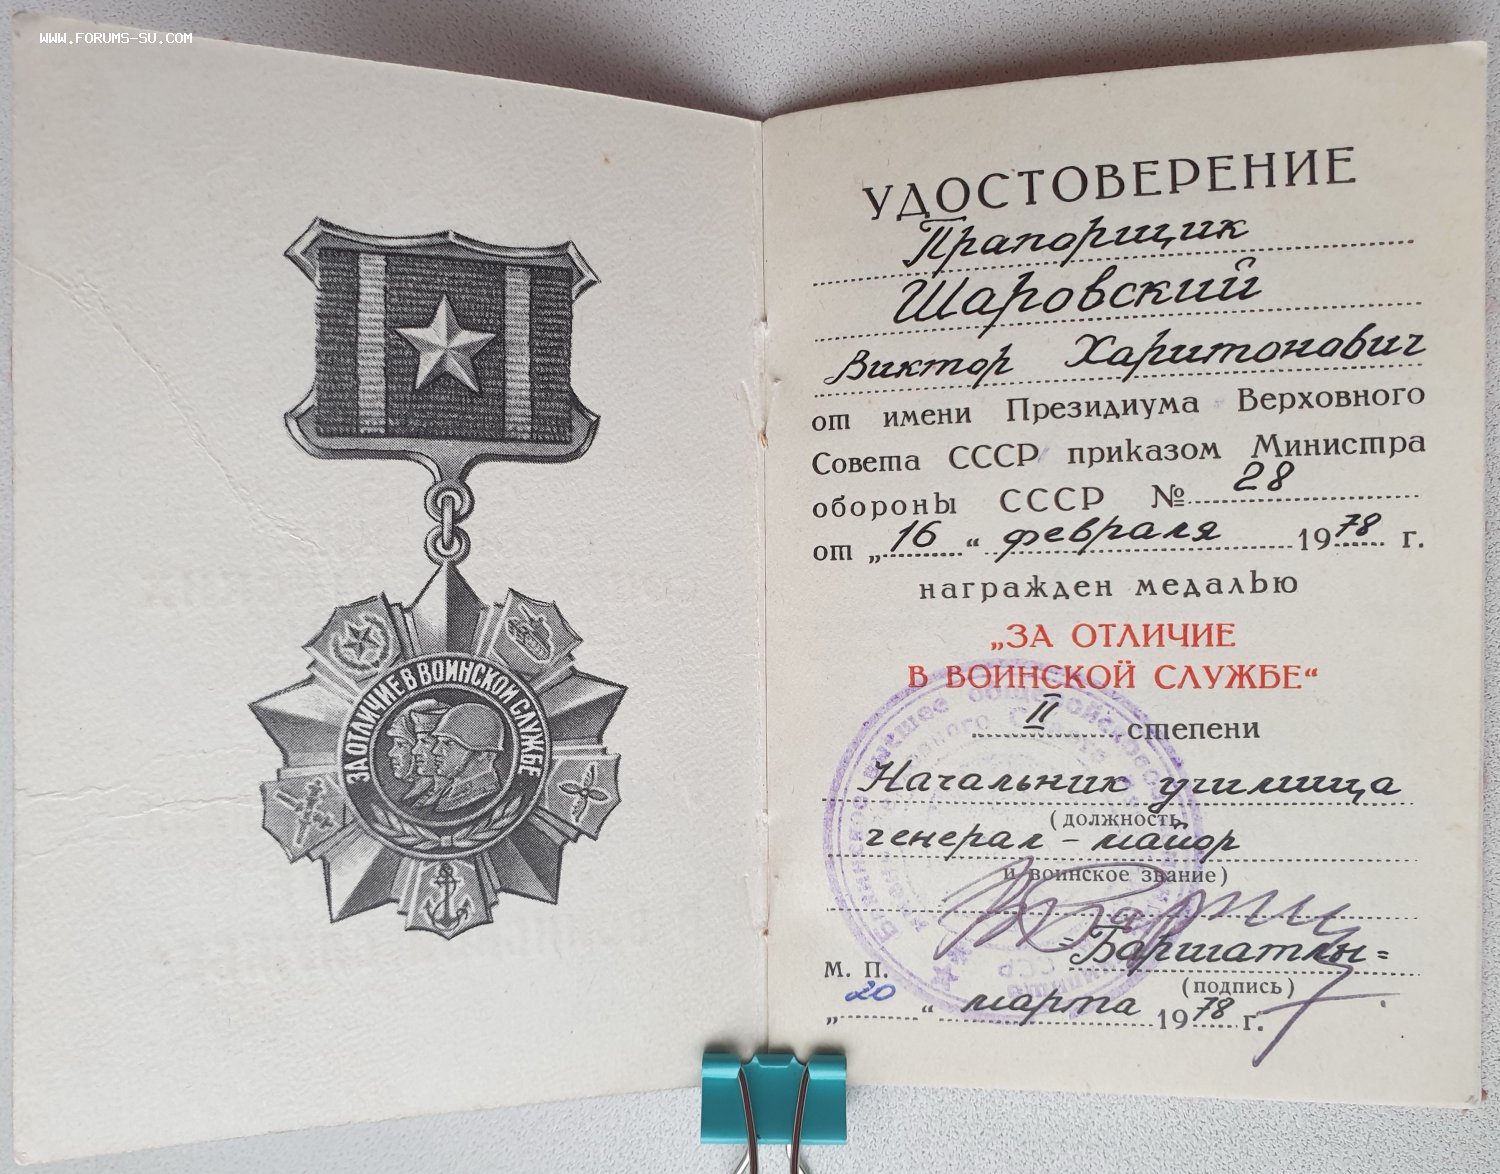 WWW.FORUMS-SU.COM
ЗА ОТЛИЧИЕ В ВОИНСКОЙ СЛУЖБЕ
УДОСТОВЕРЕНИЕ
Прапорщик
Шаровский
Виктор Харитонович
от имени Президиума Верховного
Совета СССР приказом Министра
обороны СССР № 28
от „16“ февраля 1978 г.
награжден медалью
„ЗА ОТЛИЧИЕ
В ВОИНСКОЙ СЛУЖБЕ“
II степени
Начальник училища
(должность
генерал-майор
и воинское звание)
=Баршатлы=
М. П.
(подпись)
„20“ марта 1978 г.